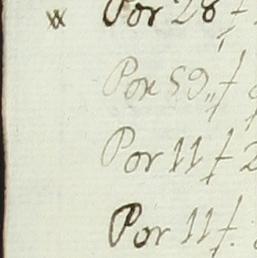 Por 28 f
Por 59 f
Por 11 f 2
Por 11 f